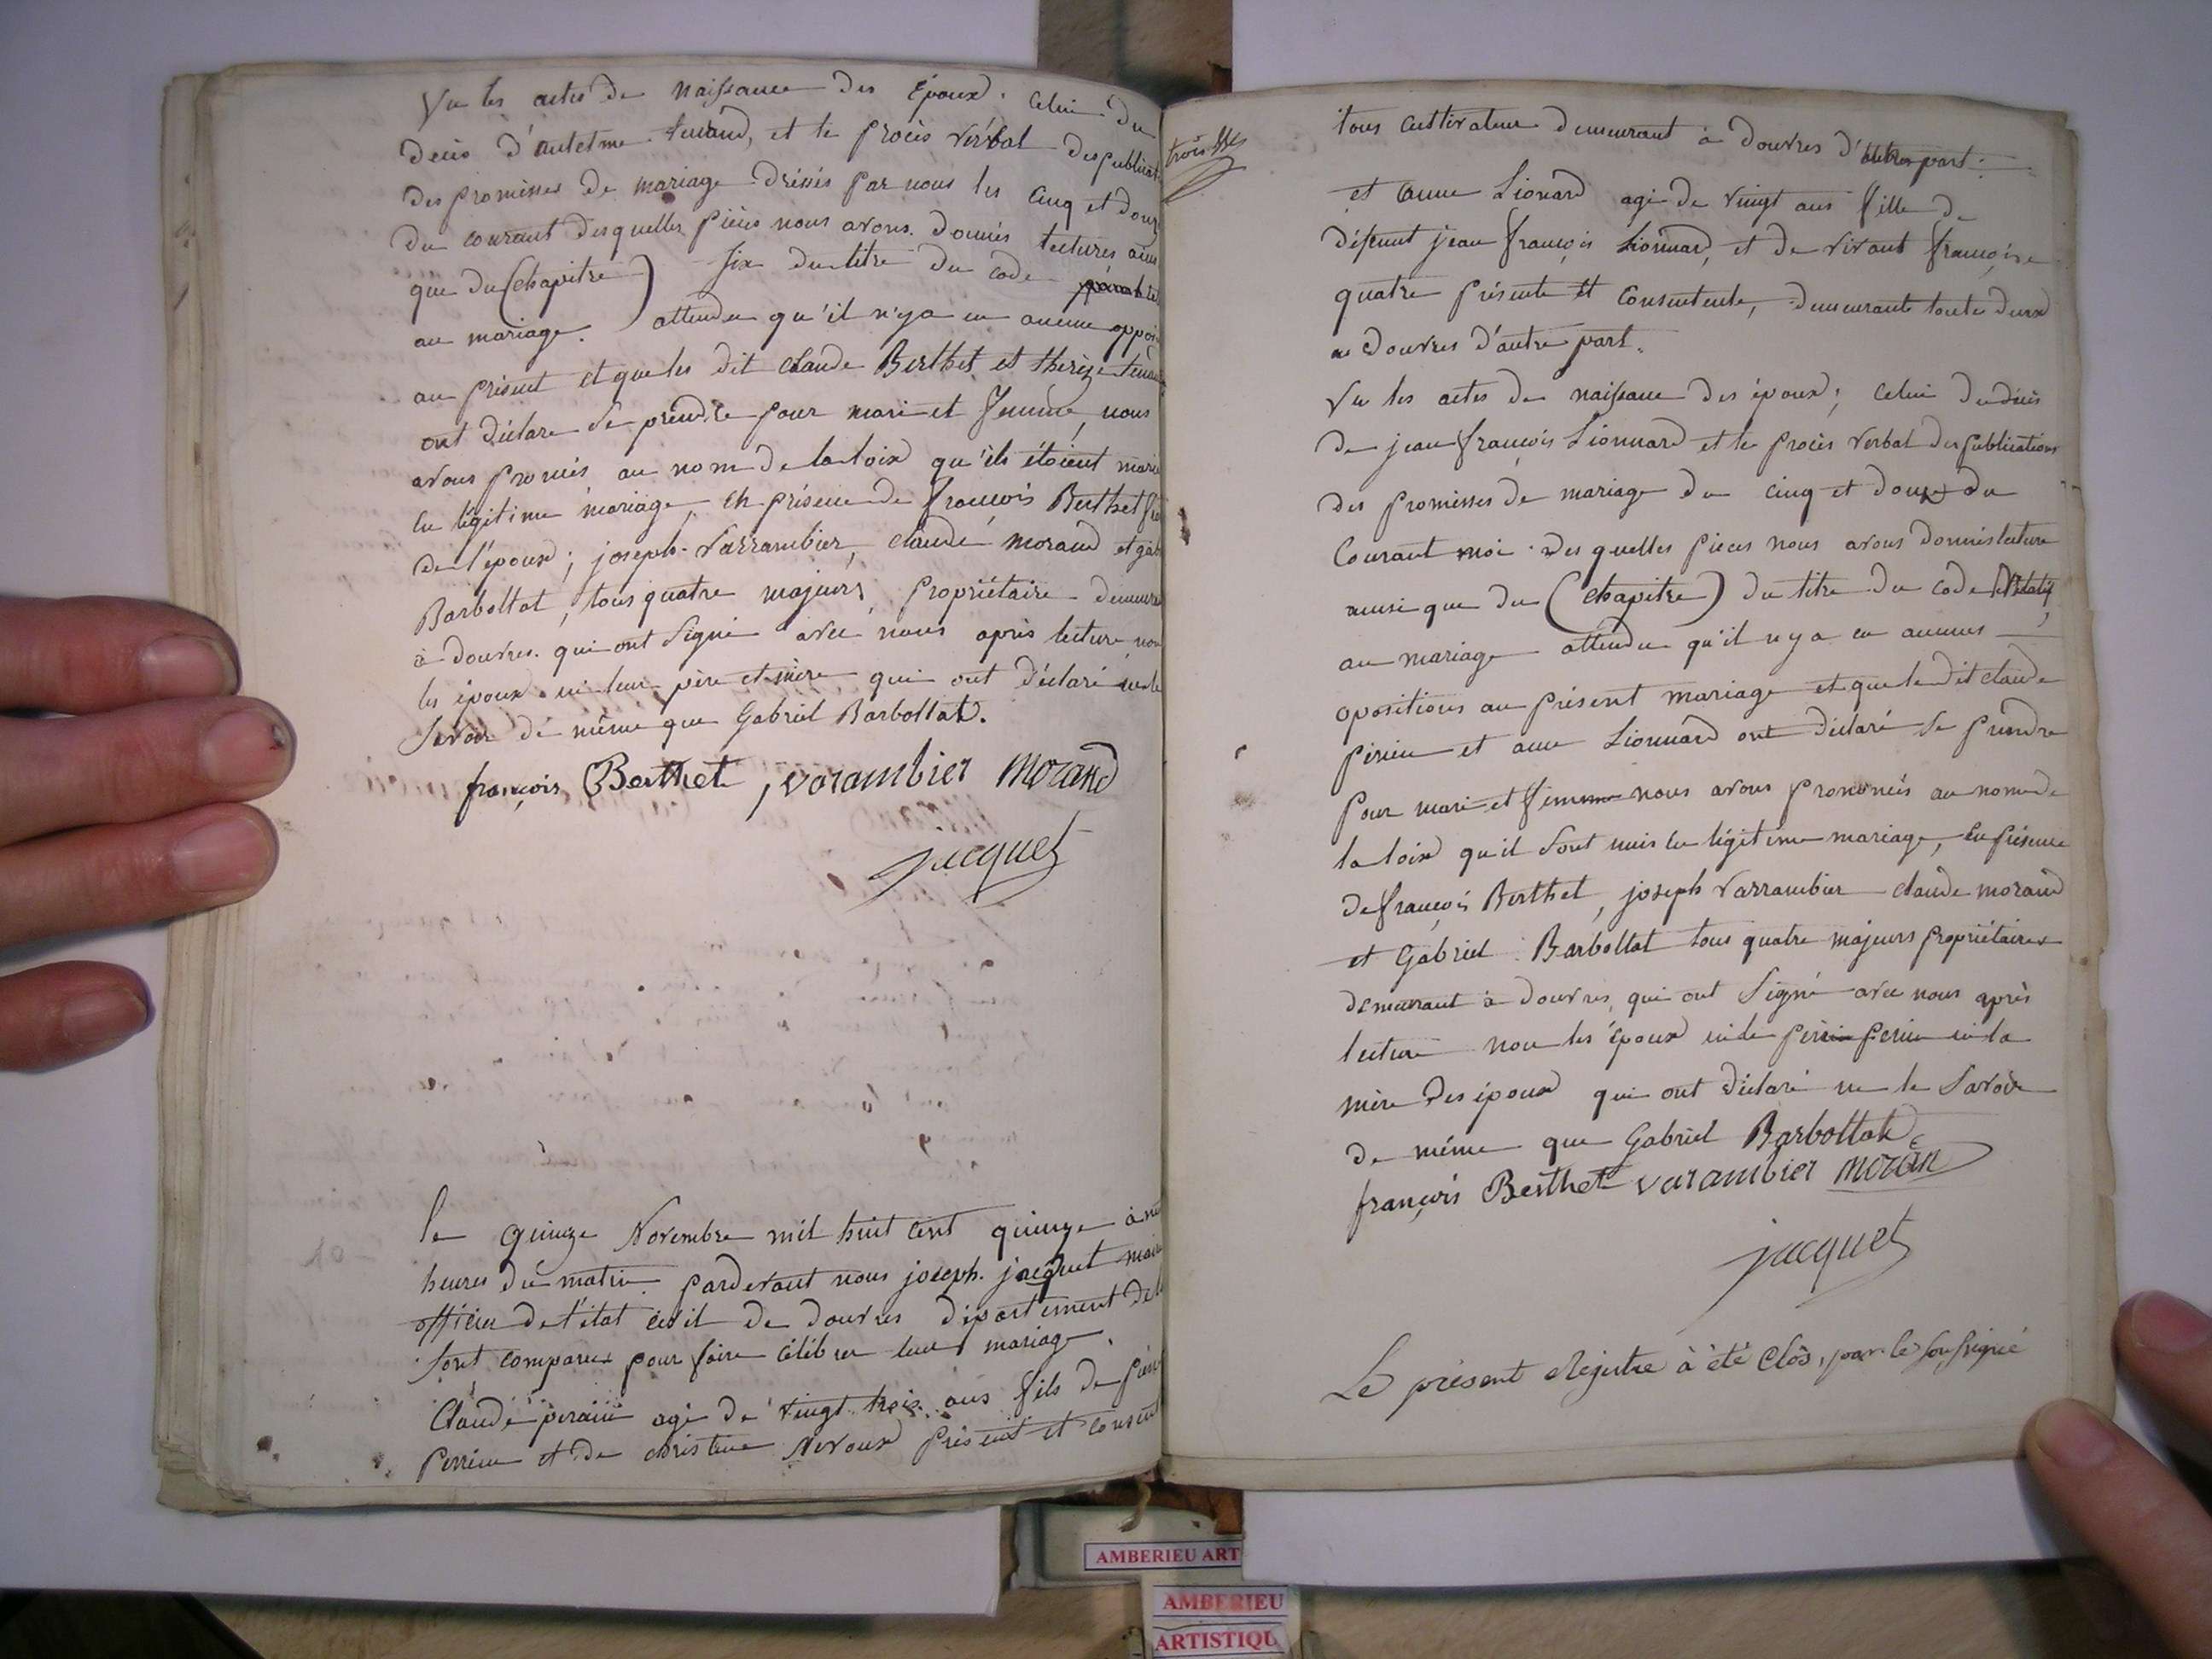 Vu les actes de naissance des époux. celui du
décès d'antelme tenand, et le procès verbal des publicat
des promesses de mariage dréssés par nous les cinq et douz
du courant desquelles pièces nous avons donnés lectures ains
que du (chapitre) six du titre du code
au mariage. attendu qu'il n'ya eu aucune oppos
au présent et que les dit claude Berthet et thérèze tenan
ont déclaré se prendre pour mari et femme, nous
avons pronés au nom de la loix qu'ils étoient mari
en légitime mariage, en présence de françois Berthet
de l'époux; joseph Varrambier, claude morand et gab
Barbollat, tous quatre majeurs, propriétaire demeura
à douvres. qui ont signé avec nous après lecture, non
les époux ni leur père et mère qui ont déclaré ne le
savoir de même que Gabriel Barbollat.
françois Berthet, varambier morand
jacquet
le quinze Novembre mil huit cent quinze à
heures du matin. pardevant nous joseph. jacquet mair
officier de l'état civil de douvres département de l
sont comparus pour faire célébrer leur mariage.
Claude perain agé de vingt trois ans fils de pier
perrin et de christine Neroux présent et consent
trois
tous cultivateur demeurant à douvres d' part.
et anne Lionard agé de vingt ans fille de
défunt jean françois Lionnard, et de vivant françoise
quatre présente et consentente, demeurant toute deux
a douvres d'autre part.
Vu les actes de naissance des époux; celui du décès
de jean françois Lionnard et le procès verbal des publications
des promesses de mariage du cinq et douze du
Courant moi desquelles pieces nous avons donnés lecture
ainsi que du (chapitre) du titre du code
au mariage attendu qu'il n'y a eu aucunes
opositions au présent mariage et que le dit claude
périn et anne Lionnard ont déclaré se prendre
pour mari et femme nous avons prononcés au nom de
la loix qu'il sont unis en légitime mariage, en présence
de françois Berthet, joseph Varrambier claude morand
et Gabriel Barbollat tous quatre majeurs propriétaires
demeurant à douvres, qui ont signé avec nous après
lecture non les époux ni le périn perin ni la
mère des époux qui ont déclaré ne le savoir
de même que Gabriel Barbollat.
françois Berthet varambier moran
jacquet
Le présent Régistre à été Clôs, par le soussigné
AMBERIEU ART
AMBERIEU
ARTISTIQU